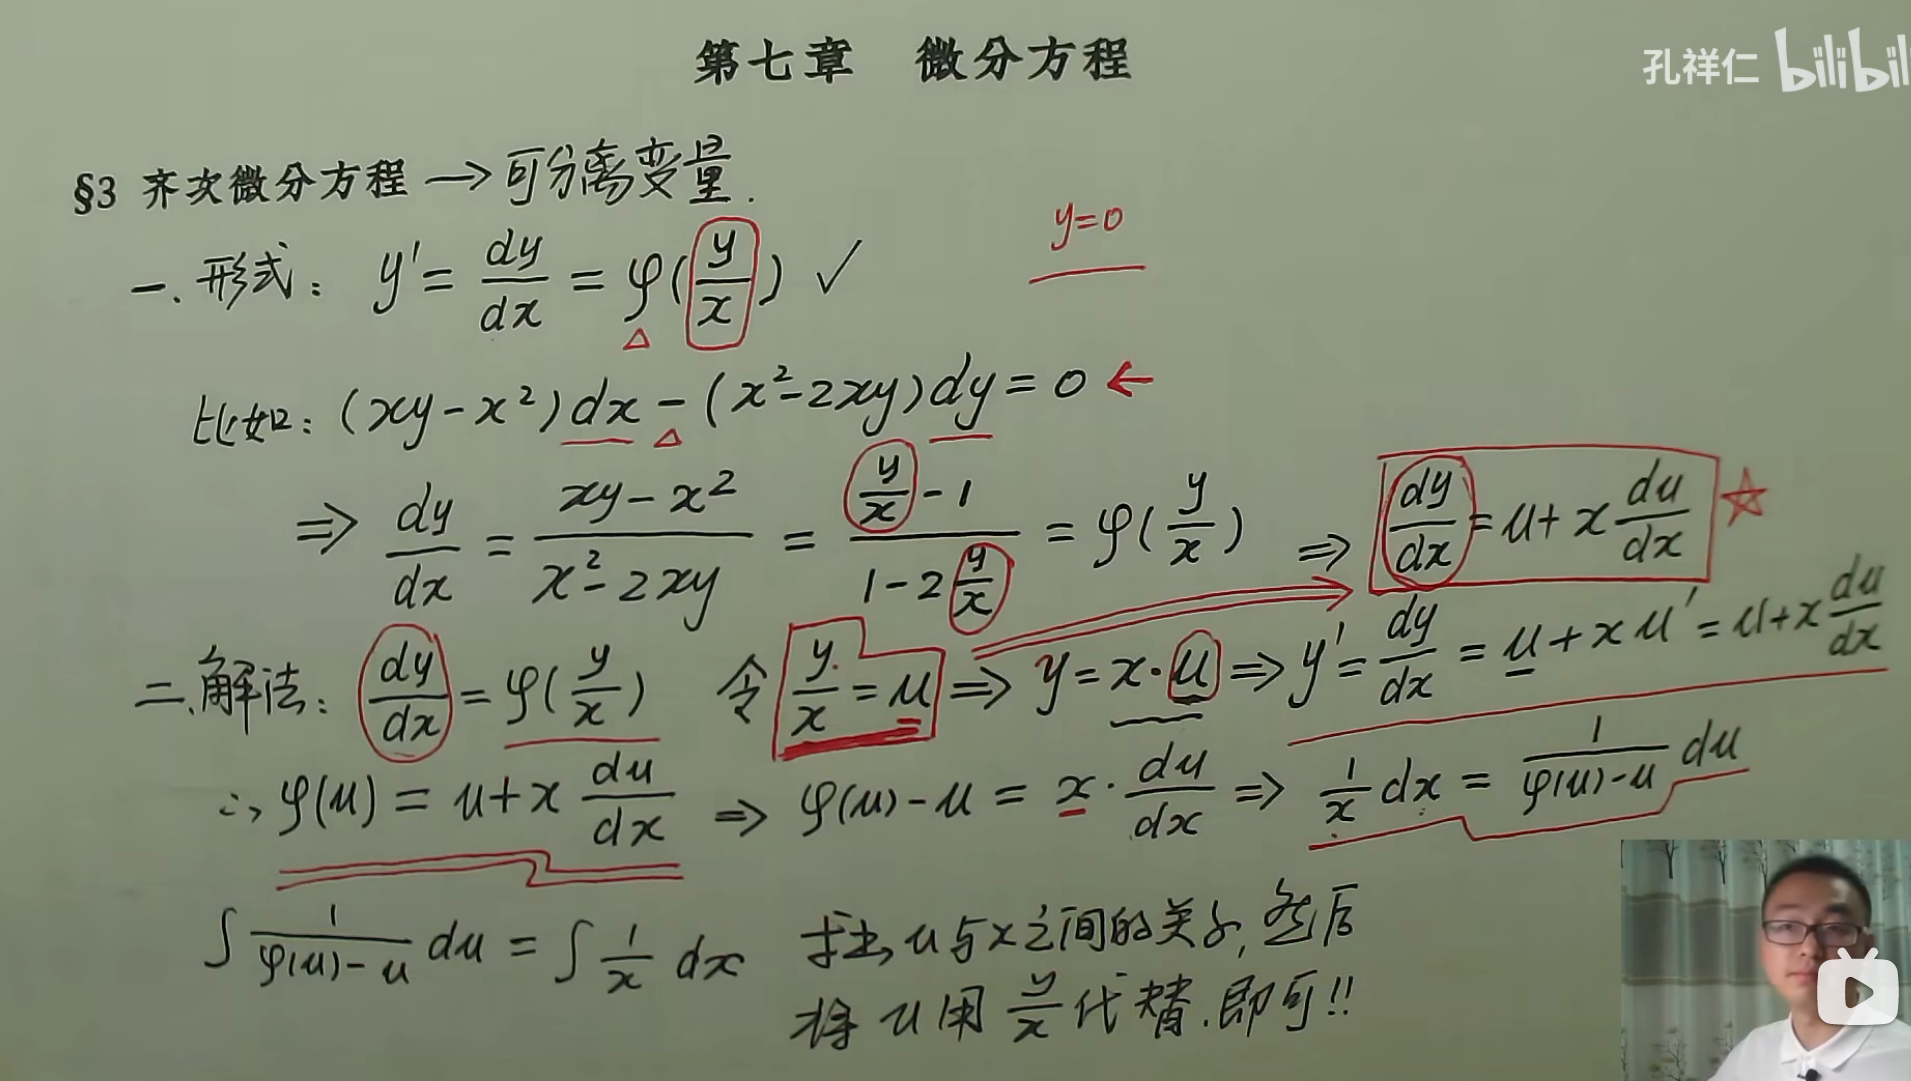 第七章 微分方程
孔祥仁 bilibili
§3 齐次微分方程 → 可分离变量.
y=0
一. 形式: y' = dy/dx = φ(y/x) ✓
比如: (xy-x²)dx - (x²-2xy)dy = 0 ←
⇒ dy/dx = (xy-x²)/(x²-2xy) = (y/x - 1)/(1-2 y/x) = φ(y/x) ⇒ dy/dx = u + x du/dx ☆
二. 解法: dy/dx = φ(y/x) 令 y/x = u ⇒ y = x·u ⇒ y' = dy/dx = u + xu' = u + x du/dx
∴ φ(u) = u + x du/dx ⇒ φ(u) - u = x · du/dx ⇒ 1/x dx = 1/(φ(u)-u) du
∫ 1/(φ(u)-u) du = ∫ 1/x dx 求出 u与x之间的关系, 然后
将 u 用 y/x 代替. 即可!!